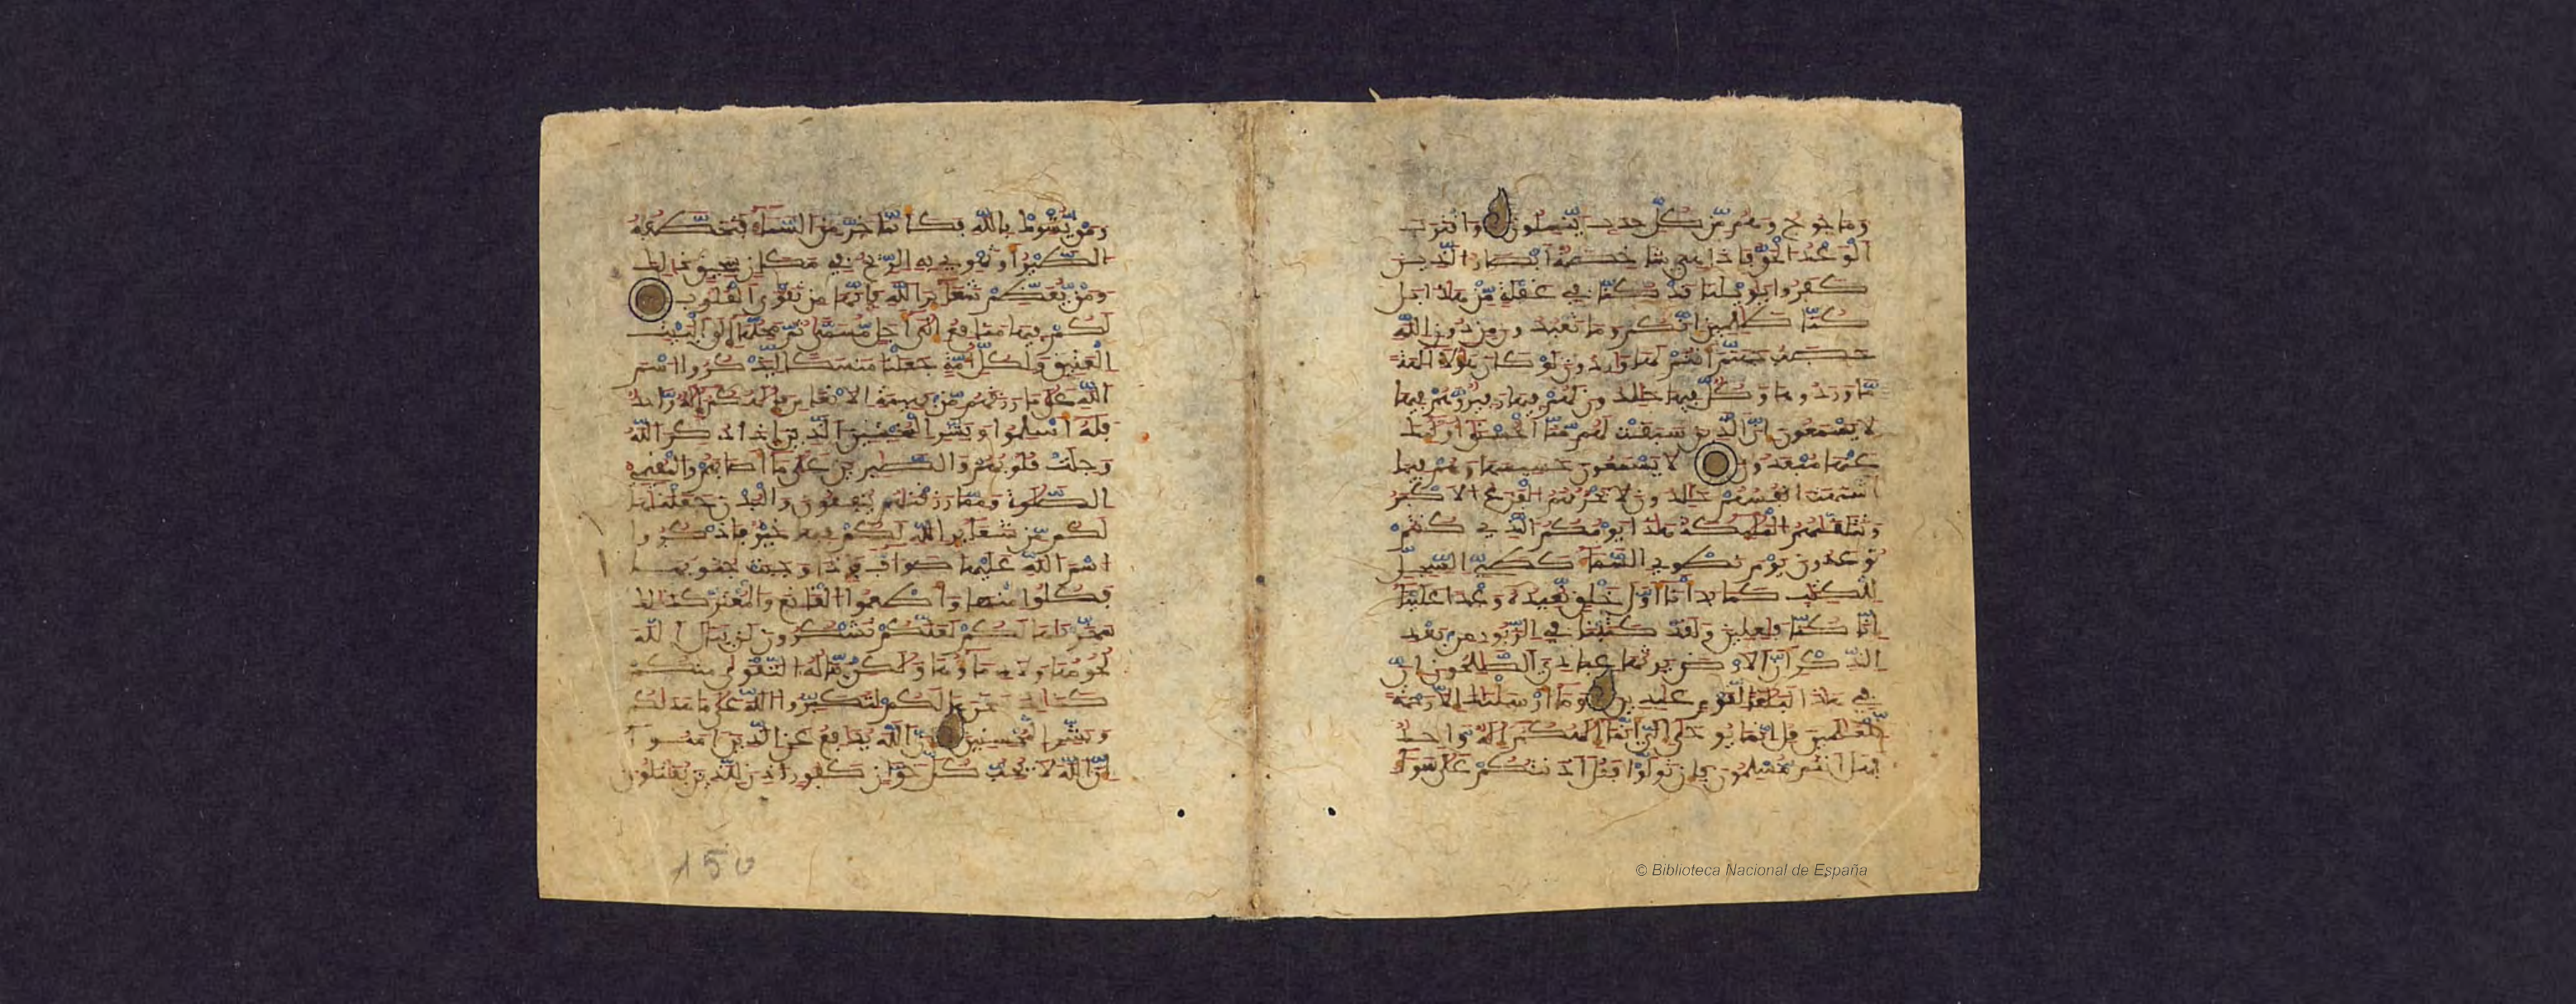 وماجوج وهم من كل حدب ينسلون واقترب
الوعد الحق فاذا هي شخصة ابصار الذين
كفروا يويلنا قد كنا في غفلة من هذا بل
كنا ظلمين انكم وما تعبدون من دون الله
حصب جهنم انتم لها واردون لو كان هؤلاء الهة
ما وردوها وكل فيها خلدون لهم فيها زفير وهم فيها
لا يسمعون ان الذين سبقت لهم منا الحسنى اولئك
عنها مبعدون لا يسمعون حسيسها وهم فيما
اشتهت انفسهم خلدون لا يحزنهم الفزع الاكبر
وتتلقيهم الملئكة هذا يومكم الذي كنتم
توعدون يوم نطوي السماء كطي السجل
للكتب كما بدانا اول خلق نعيده وعدا علينا
انا كنا فعلين ولقد كتبنا في الزبور من بعد
الذكر ان الارض يرثها عبادي الصلحون ان
في هذا لبلغا لقوم عبدين وما ارسلنك الا رحمة
للعلمين قل انما يوحى الي انما الهكم اله واحد
فهل انتم مسلمون فان تولوا فقل اذنتكم على سواء
ومن يشرك بالله فكانما خر من السماء فتخطفه
الطير او تهوي به الريح في مكان سحيق ذلك
ومن يعظم شعئر الله فانها من تقوى القلوب
لكم فيها منفع الى اجل مسمى ثم محلها الى البيت
العتيق ولكل امة جعلنا منسكا ليذكروا اسم
الله على ما رزقهم من بهيمة الانعم فالهكم اله واحد
فله اسلموا وبشر المخبتين الذين اذا ذكر الله
وجلت قلوبهم والصبرين على ما اصابهم والمقيمي
الصلوة ومما رزقنهم ينفقون والبدن جعلنها
لكم من شعئر الله لكم فيها خير فاذكروا
اسم الله عليها صواف فاذا وجبت جنوبها
فكلوا منها واطعموا القانع والمعتر كذلك
سخرنها لكم لعلكم تشكرون لن ينال الله
لحومها ولا دماؤها ولكن يناله التقوى منكم
كذلك سخرها لكم لتكبروا الله على ما هديكم
وبشر المحسنين ان الله يدافع عن الذين امنوا
ان الله لا يحب كل خوان كفور اذن للذين يقاتلون
150
© Biblioteca Nacional de España